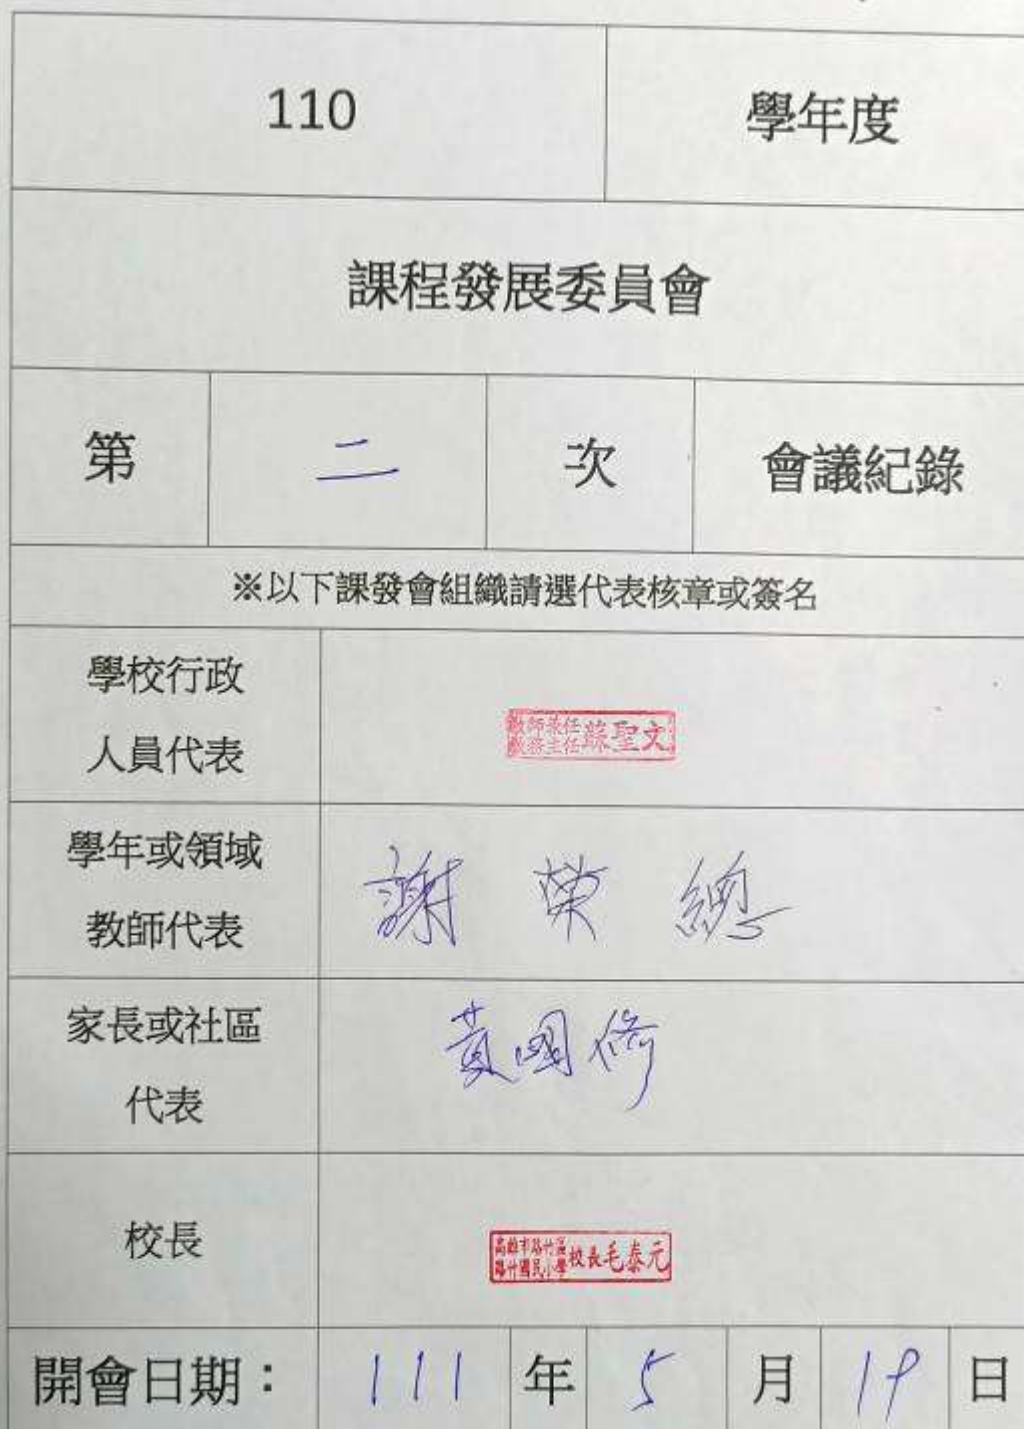 110 學年度
課程發展委員會
第 二 次 會議紀錄
※以下課發會組織請選代表核章或簽名
學校行政
人員代表
教師兼任
教務主任 蘇聖文
學年或領域
教師代表
謝榮總
家長或社區
代表
黃國修
校長
高雄市路竹區
路竹國民小學 校長毛泰元
開會日期： 111 年 5 月 19 日